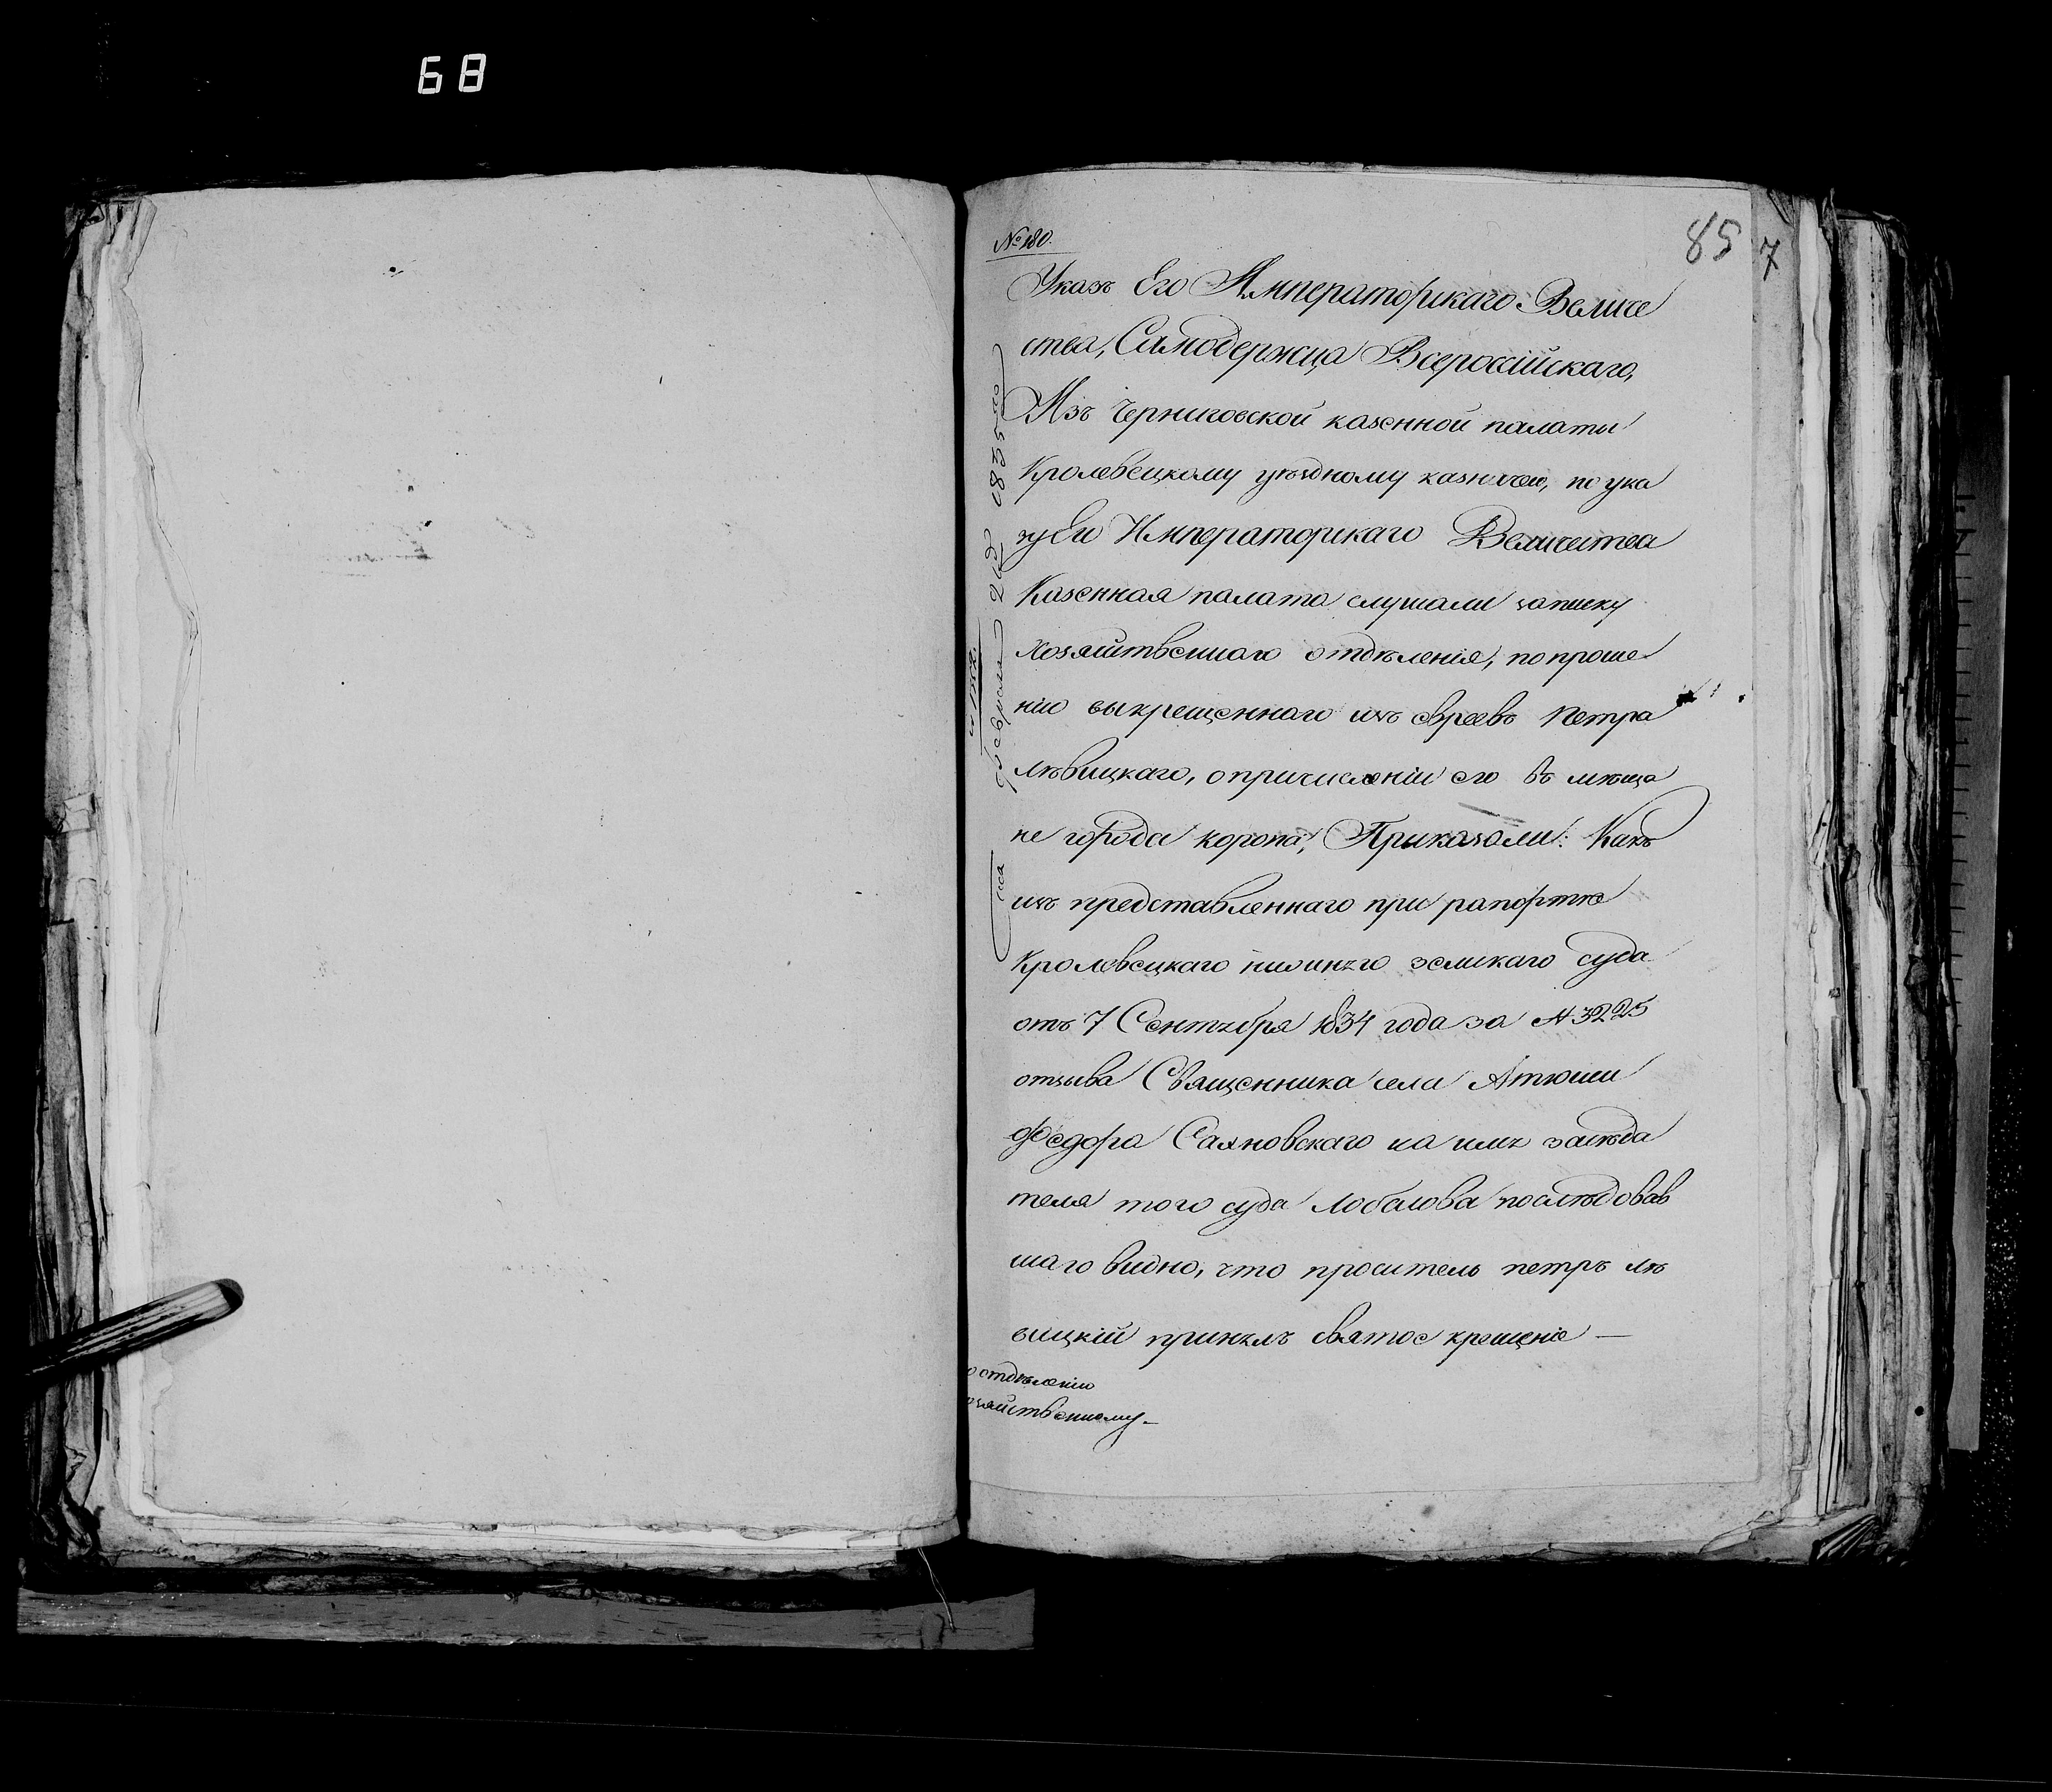 68
85
7
№ 180.
Указъ Его Императорскаго Величе
ства, Самодержца Всероссійскаго,
Изъ Черниговской казенной палаты
Кролевецкому уѣздному казначею, по ука
зу Его Императорскаго Величества
Казенная палата слушали записку
хозяйственнаго отдѣленія, по проше
нію выкрещеннаго изъ евреевъ Петра
Лѣвицкаго, о причисленіи его въ мѣща
не города Коропа, Приказали: Какъ
изъ представленнаго при рапортѣ
Кролевецкаго нижняго земскаго суда
отъ 7 Сентября 1834 года за № 3225
отзыва Священника села Атюши
Федора Саяновскаго на имя засѣда
теля того суда Лобасова последовав
шаго видно, что проситель петръ лѣ
вицкій принялъ святое крещеніе —
о отдѣленію
озяйственному —
февраля 1835 го